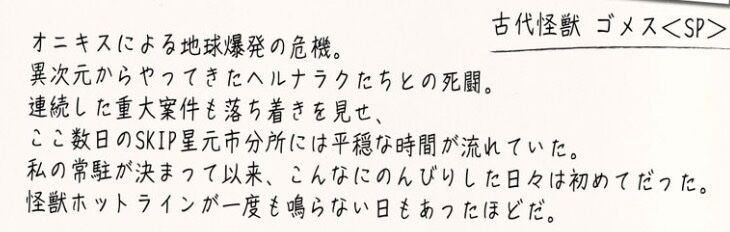 古代怪獣 ゴメス<SP>
オニキスによる地球爆発の危機。
異次元からやってきたヘルナラクたちとの死闘。
連続した重大案件も落ち着きを見せ、
ここ数日のSKIP星元市分所には平穏な時間が流れていた。
私の常駐が決まって以来、こんなにのんびりした日々は初めてだった。
怪獣ホットラインが一度も鳴らない日もあったほどだ。